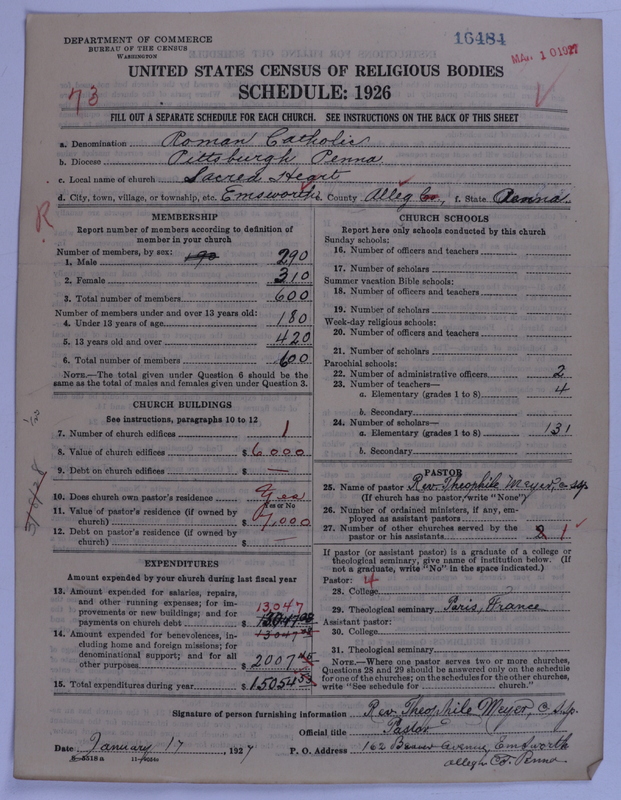 DEPARTMENT OF COMMERCE
BUREAU OF THE CENSUS
WASHINGTON
16484
MAR 10 1927
UNITED STATES CENSUS OF RELIGIOUS BODIES
SCHEDULE: 1926
73
FILL OUT A SEPARATE SCHEDULE FOR EACH CHURCH. SEE INSTRUCTIONS ON THE BACK OF THIS SHEET
a. Denomination Roman Catholic
b. Diocese Pittsburgh Penna.
c. Local name of church Sacred Heart
d. City, town, village, or township, etc. Emsworth e. County Alleg Co., f. State Penna.
R
MEMBERSHIP
Report number of members according to definition of
member in your church
Number of members, by sex: 190
1. Male 290
2. Female 310
3. Total number of members 600
Number of members under and over 13 years old:
4. Under 13 years of age 180
5. 13 years old and over 420
6. Total number of members 600
NOTE.—The total given under Question 6 should be the
same as the total of males and females given under Question 3.
CHURCH BUILDINGS
See instructions, paragraphs 10 to 12
7. Number of church edifices 1
8. Value of church edifices $ 6,000
9. Debt on church edifices $ —
10. Does church own pastor's residence Yes
Yes or No
11. Value of pastor's residence (if owned by
church) $ 7,000
12. Debt on pastor's residence (if owned by
church) $ —
EXPENDITURES
Amount expended by your church during last fiscal year
13. Amount expended for salaries, repairs,
and other running expenses; for im-
provements or new buildings; and for
payments on church debt $ 13,047
14. Amount expended for benevolences, in-
cluding home and foreign missions; for
denominational support; and for all
other purposes $ 2007
15. Total expenditures during year $ 15054
CHURCH SCHOOLS
Report here only schools conducted by this church
Sunday schools:
16. Number of officers and teachers
17. Number of scholars
Summer vacation Bible schools:
18. Number of officers and teachers
19. Number of scholars
Week-day religious schools:
20. Number of officers and teachers
21. Number of scholars
Parochial schools:
22. Number of administrative officers 2
23. Number of teachers—
a. Elementary (grades 1 to 8) 4
b. Secondary
24. Number of scholars—
a. Elementary (grades 1 to 8) 131
b. Secondary
PASTOR
25. Name of pastor Rev. Theophile Meyer, C.S.Sp.
(If church has no pastor, write "None")
26. Number of ordained ministers, if any, em-
ployed as assistant pastors
27. Number of other churches served by the
pastor or his assistants 2 1
If pastor (or assistant pastor) is a graduate of a college or
theological seminary, give name of institution below. (If
not a graduate, write "No" in the space indicated.)
Pastor: 4
28. College
29. Theological seminary Paris, France
Assistant pastor:
30. College
31. Theological seminary
NOTE.—Where one pastor serves two or more churches,
Questions 28 and 29 should be answered only on the schedule
for one of the churches; on the schedules for the other churches,
write "See schedule for church."
Signature of person furnishing information Rev. Theophile Meyer, C.S.Sp.
Official title Pastor
Date January 17, 1927 P. O. Address 162 Beaver Avenue, Emsworth
Allegh Co. Penna.
8—5518 a